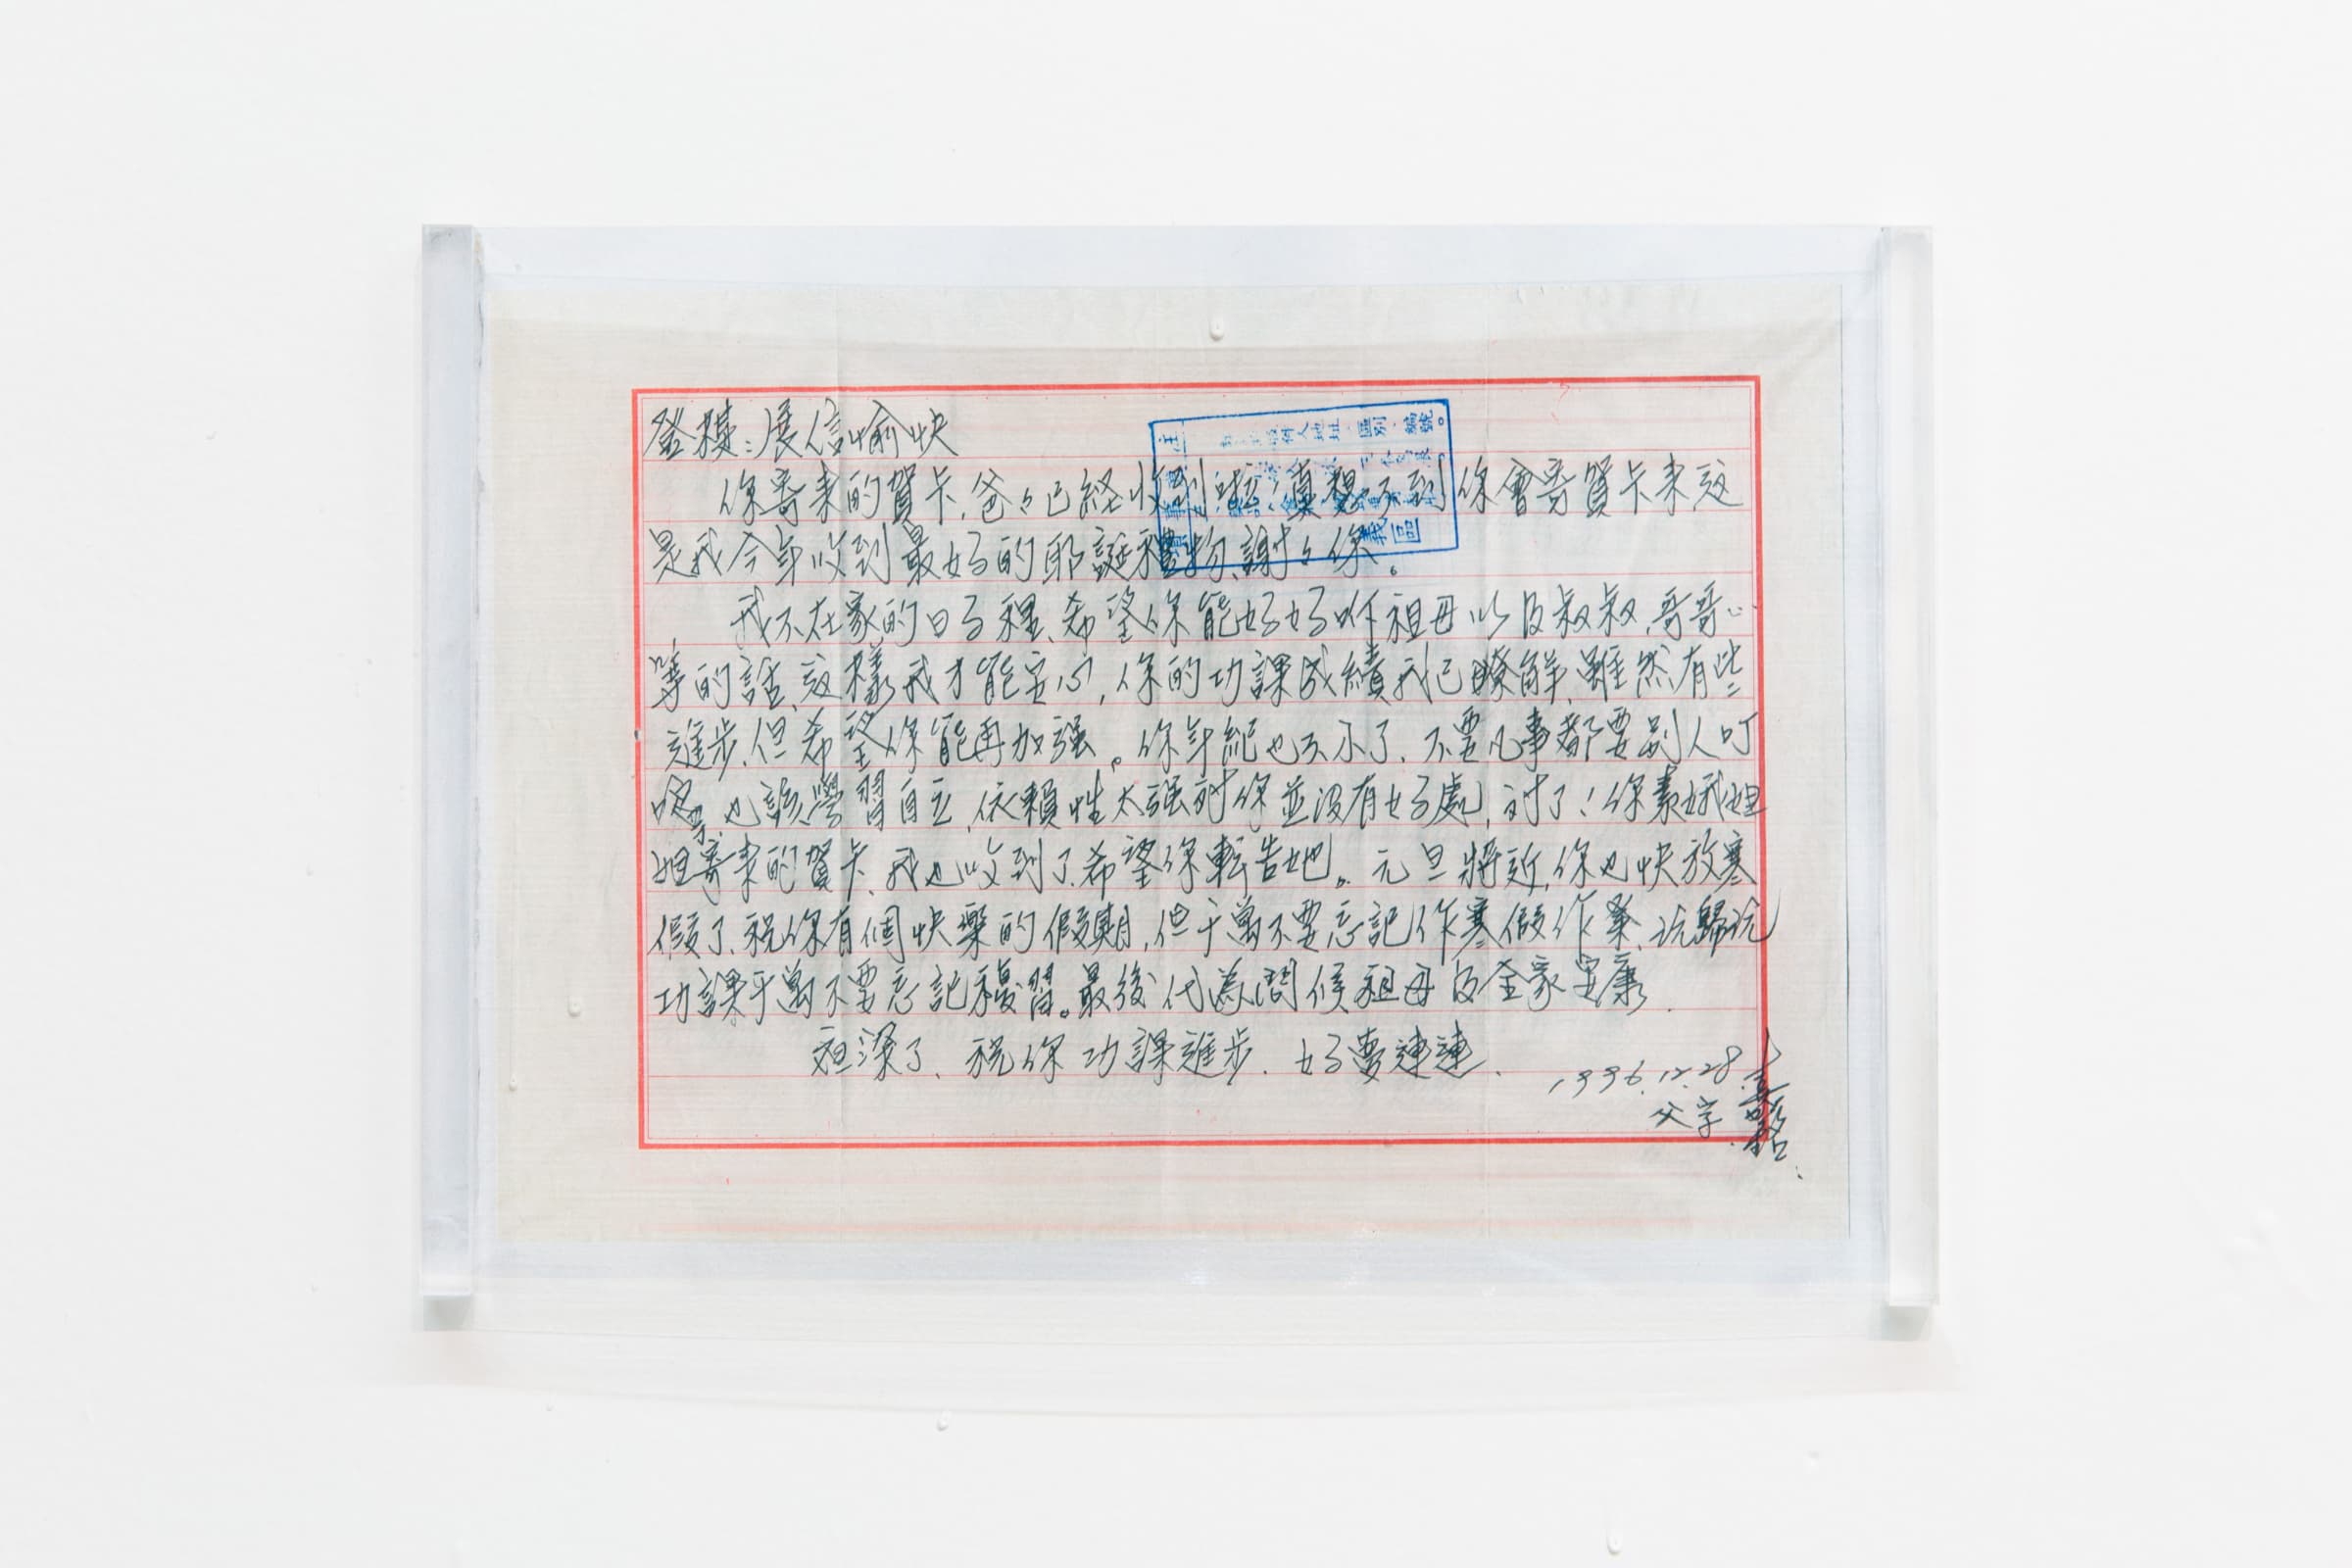 登祺:展信愉快
你寄来的賀卡,爸々已経收到啦!真想不到你會寄賀卡来,這
是我今年收到最好的耶誕禮物、謝々你。
我不在家的日子裡、希望你能好好听祖母以及叔叔、哥哥…
等的話、這樣我才能安心,你的功課成績我已瞭解、雖然有些
進步,但希望你能再加强。你年紀也不小了、不要凡事都要别人叮
嚀、也該學習自立、依賴性太强對你並沒有好處,對了!你素娥姐
姐寄来的賀卡、我也收到了、希望你転告她。元旦將近,你也快放寒
假了、祝你有個快樂的假期,但千萬不要忘記作寒假作業、玩歸玩
功課千萬不要忘記複習。最後代為問候祖母及全家安康.
夜深了、祝你功課進步.好夢連連、
1996.12.28.
父字
區